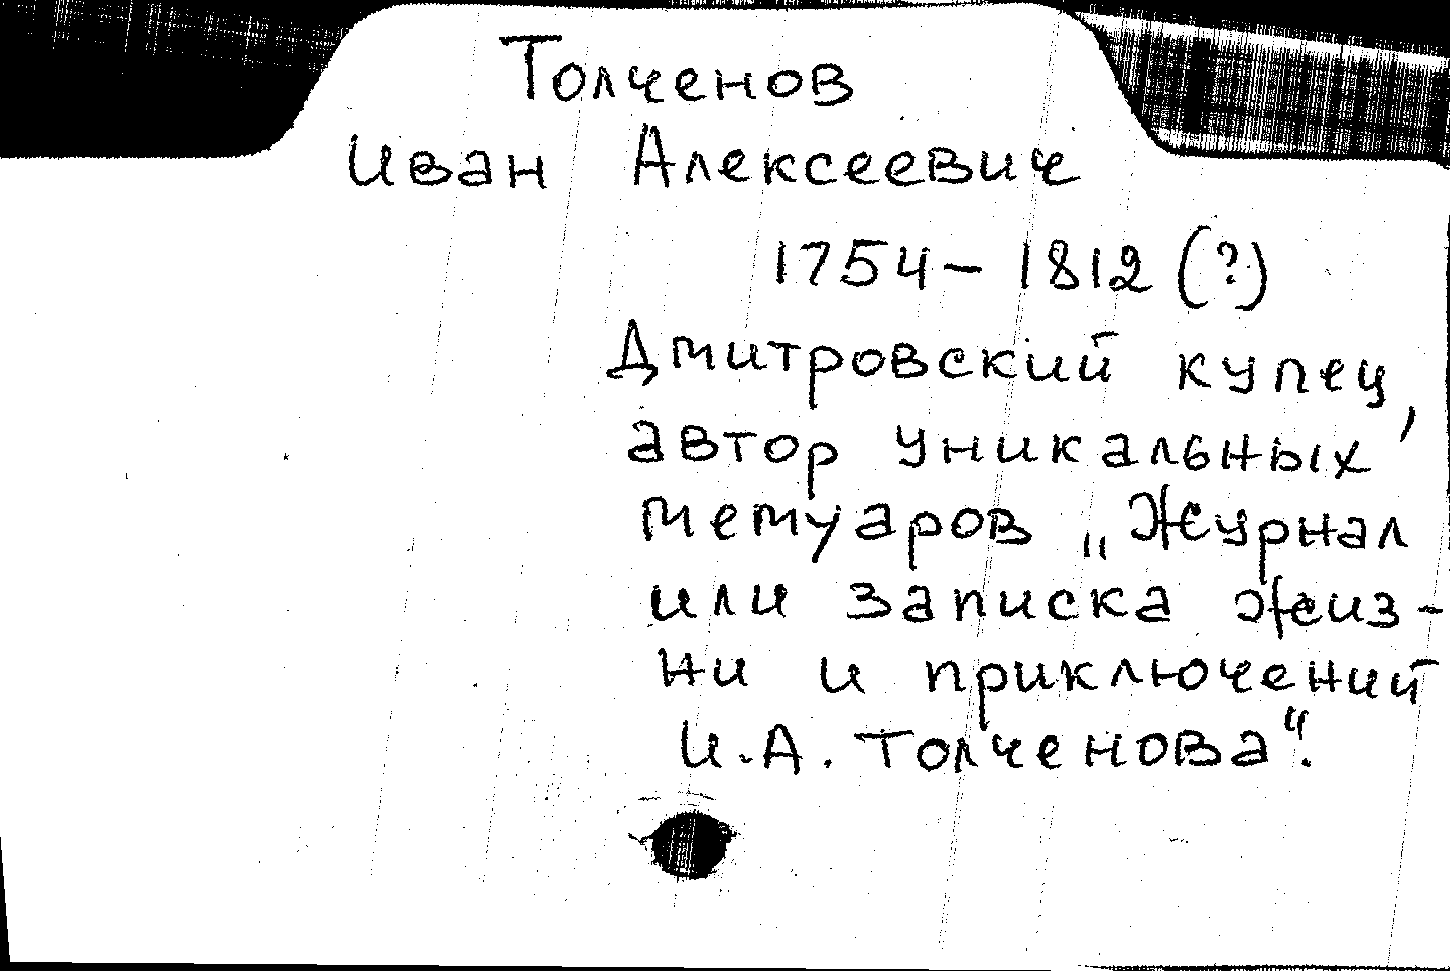 Толченов
Иван Алексеевич
1754 – 1812 (?)
Дмитровский купец,
автор уникальных
мемуаров „Журнал
или записка жиз-
ни и приключений
И.А. Толченова“.